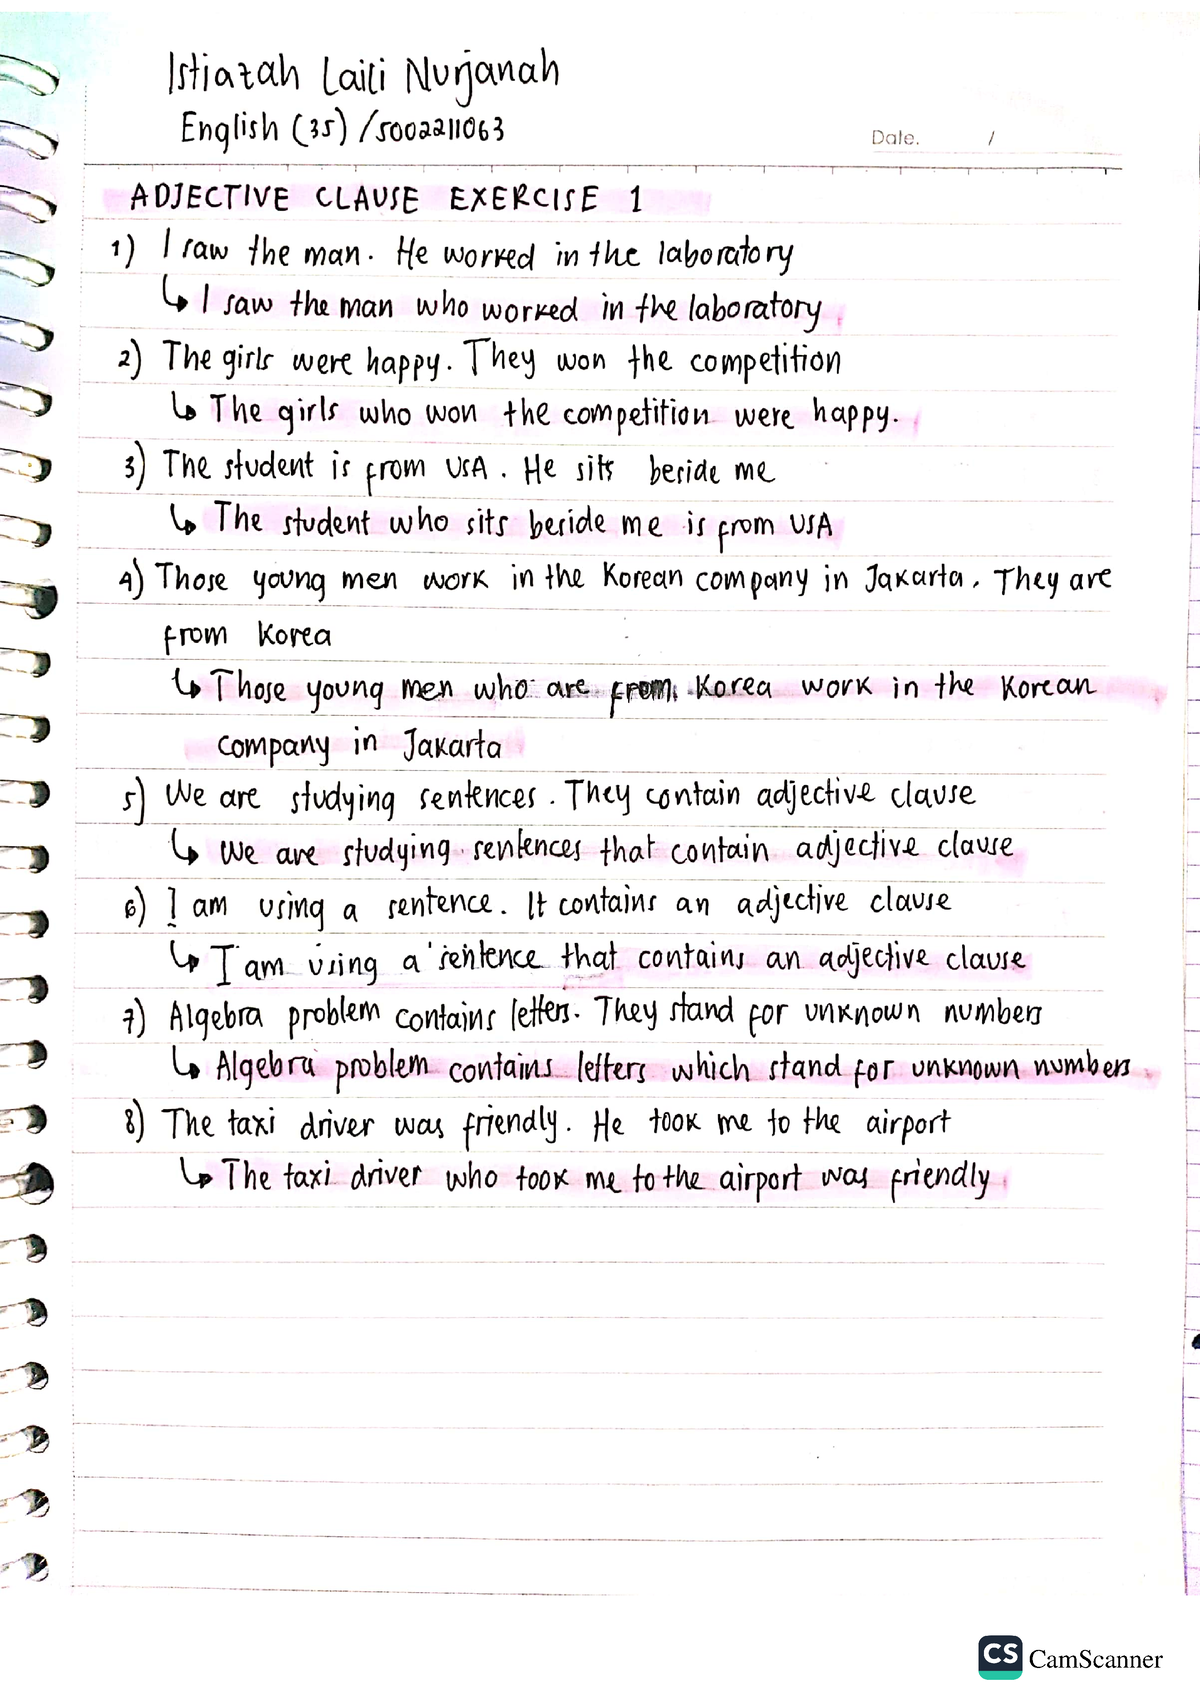 Istiazah Laili Nurjanah
English (35) / 5002211063
Date. /
ADJECTIVE CLAUSE EXERCISE 1
1) I saw the man. He worked in the laboratory
↳ I saw the man who worked in the laboratory
2) The girls were happy. They won the competition
↳ The girls who won the competition were happy.
3) The student is from USA. He sits beside me
↳ The student who sits beside me is from USA
4) Those young men work in the Korean company in Jakarta. They are
from Korea
↳ Those young men who are from Korea work in the Korean
company in Jakarta
5) We are studying sentences. They contain adjective clause
↳ We are studying sentences that contain adjective clause
6) I am using a sentence. It contains an adjective clause
↳ I am using a sentence that contains an adjective clause
7) Algebra problem contains letters. They stand for unknown numbers
↳ Algebra problem contains letters which stand for unknown numbers
8) The taxi driver was friendly. He took me to the airport
↳ The taxi driver who took me to the airport was friendly
CS CamScanner